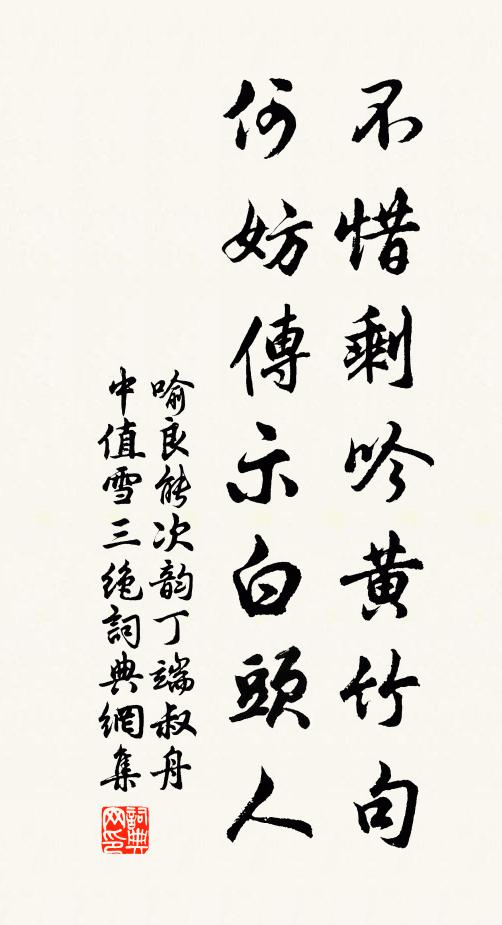 不惜剩吟黄竹句
何妨傳示白頭人
喻良能次韵丁端叔舟
中值雪三绝詞典網集
詞典
网印